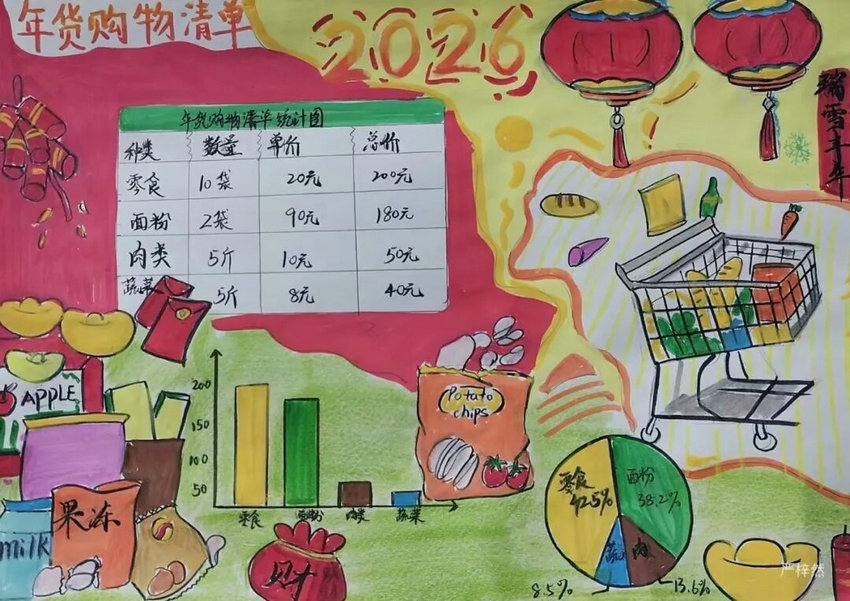 年货购物清单
2026
瑞雪丰年
年货购物清单统计图
种类 数量 单价 总价
零食 10袋 20元 200元
面粉 2袋 90元 180元
肉类 5斤 10元 50元
蔬菜 5斤 8元 40元
APPLE
Potato
chips
200
150
100
50
零食 面粉 肉类 蔬菜
零食
42.5%
面粉
38.2%
蔬 肉
8.5%
13.6%
果冻
milk
严梓然